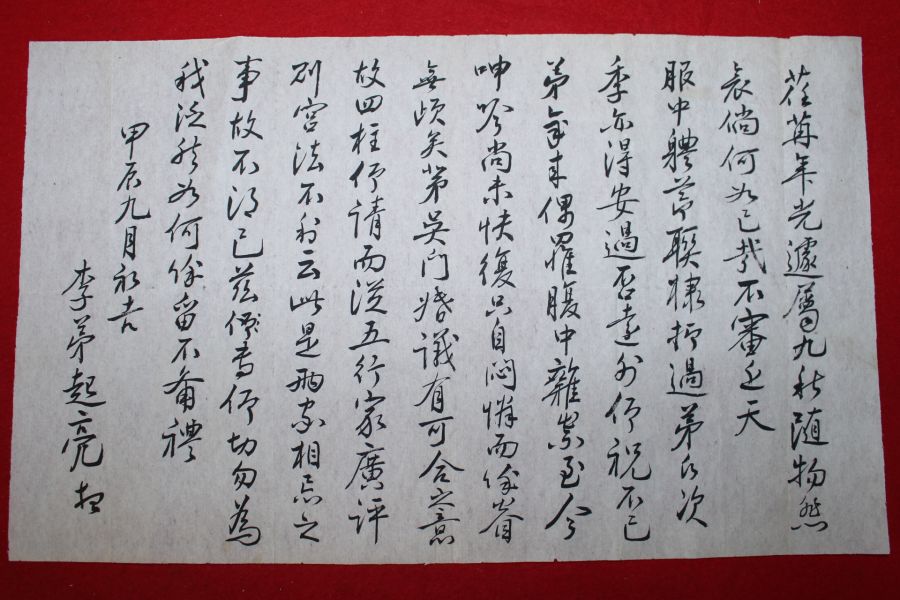 荏苒年光遽屬九秋随物然
哀倘何如已哉不審近天
服中體節聯棣持過第次
季亦得安過否遠外仰祝不已
弟年來偶罹腹中雜祟至今
呻吟尚未快復只自悶憐而餘眷
無煩矣第吳門婚議有可合之意
故四柱仰請而從五行家廣評
則宮法不利云此是兩家相忌之
事故不得已茲儀書仰切勿為
我泛然如何餘留不備禮
甲辰九月初吉
李弟起亮 拜